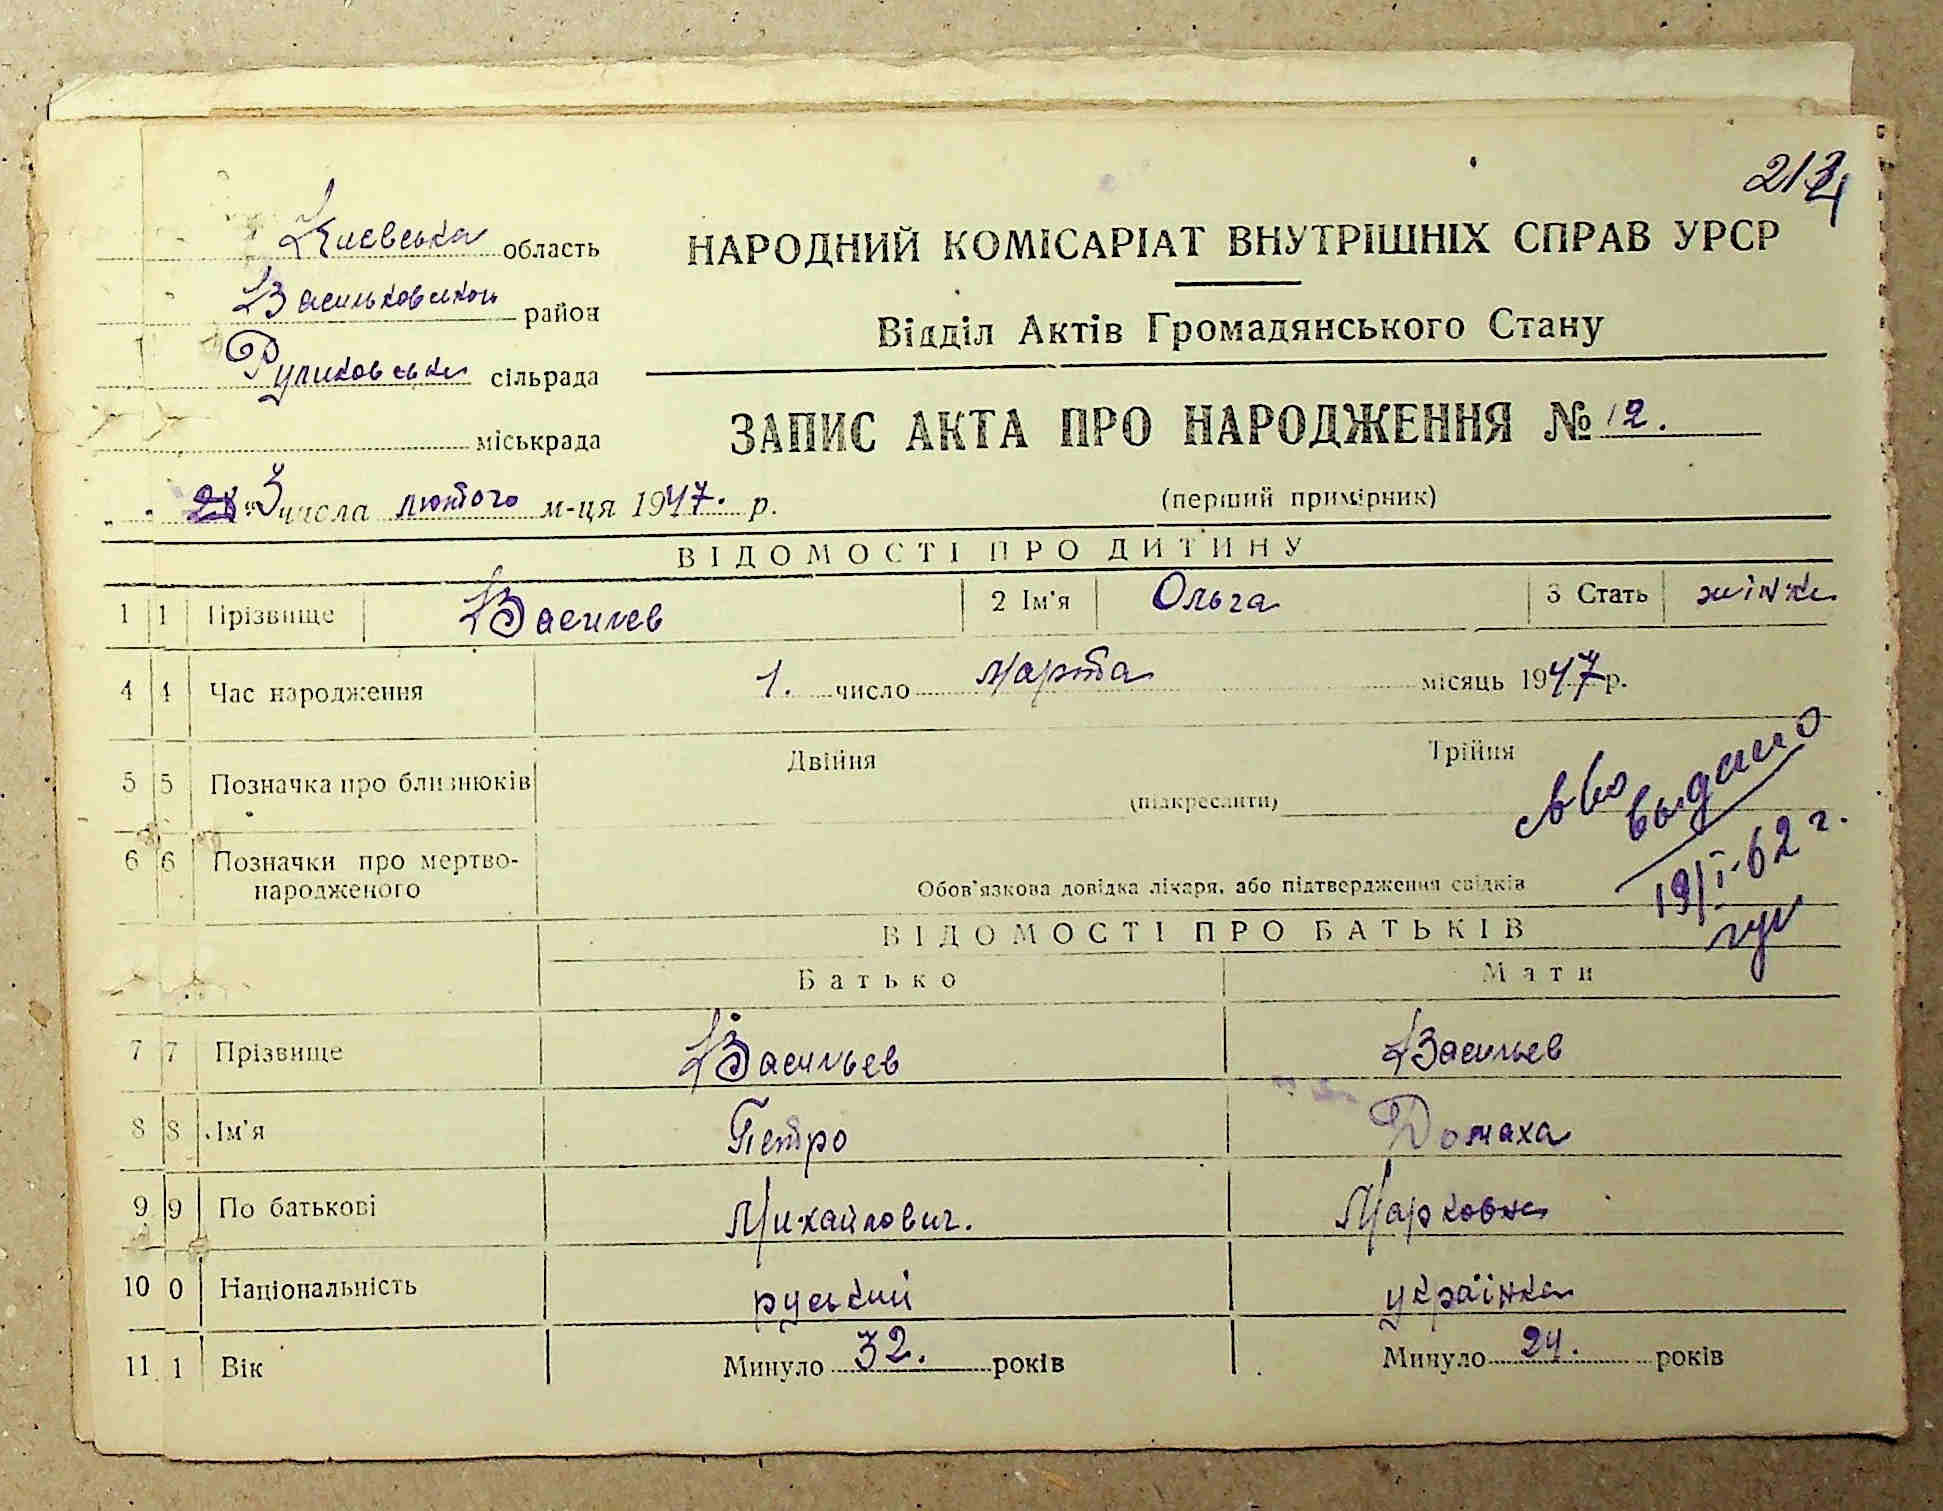 213
4
Киевська область
НАРОДНИЙ КОМІСАРІАТ ВНУТРІШНІХ СПРАВ УРСР
Васильковском район
Відділ Актів Громадянського Стану
Руликовська сільрада
міськрада
ЗАПИС АКТА ПРО НАРОДЖЕННЯ № 12.
"3 числа лютого м-ця 1947. р.
(перший примірник)
ВІДОМОСТІ ПРО ДИТИНУ
1 1 Прізвище Василев 2 Ім'я Ольга 3 Стать жінка
4 4 Час народження 1. число марта місяць 1947 р.
5 5 Позначка про близнюків Двійня Трійня
(підкреслити)
6 6 Позначки про мертво-
народженого
Обов'язкова довідка лікаря, або підтвердження свідків
св-во
выдано
19/I-62 г.
ВІДОМОСТІ ПРО БАТЬКІВ
Батько Мати
7 7 Прізвище Васильев Васильев
8 8 Ім'я Петро Домаха
9 9 По батькові Михайлович. Марковна
10 0 Національність руський українка
11 1 Вік Минуло 32. років Минуло 24. років